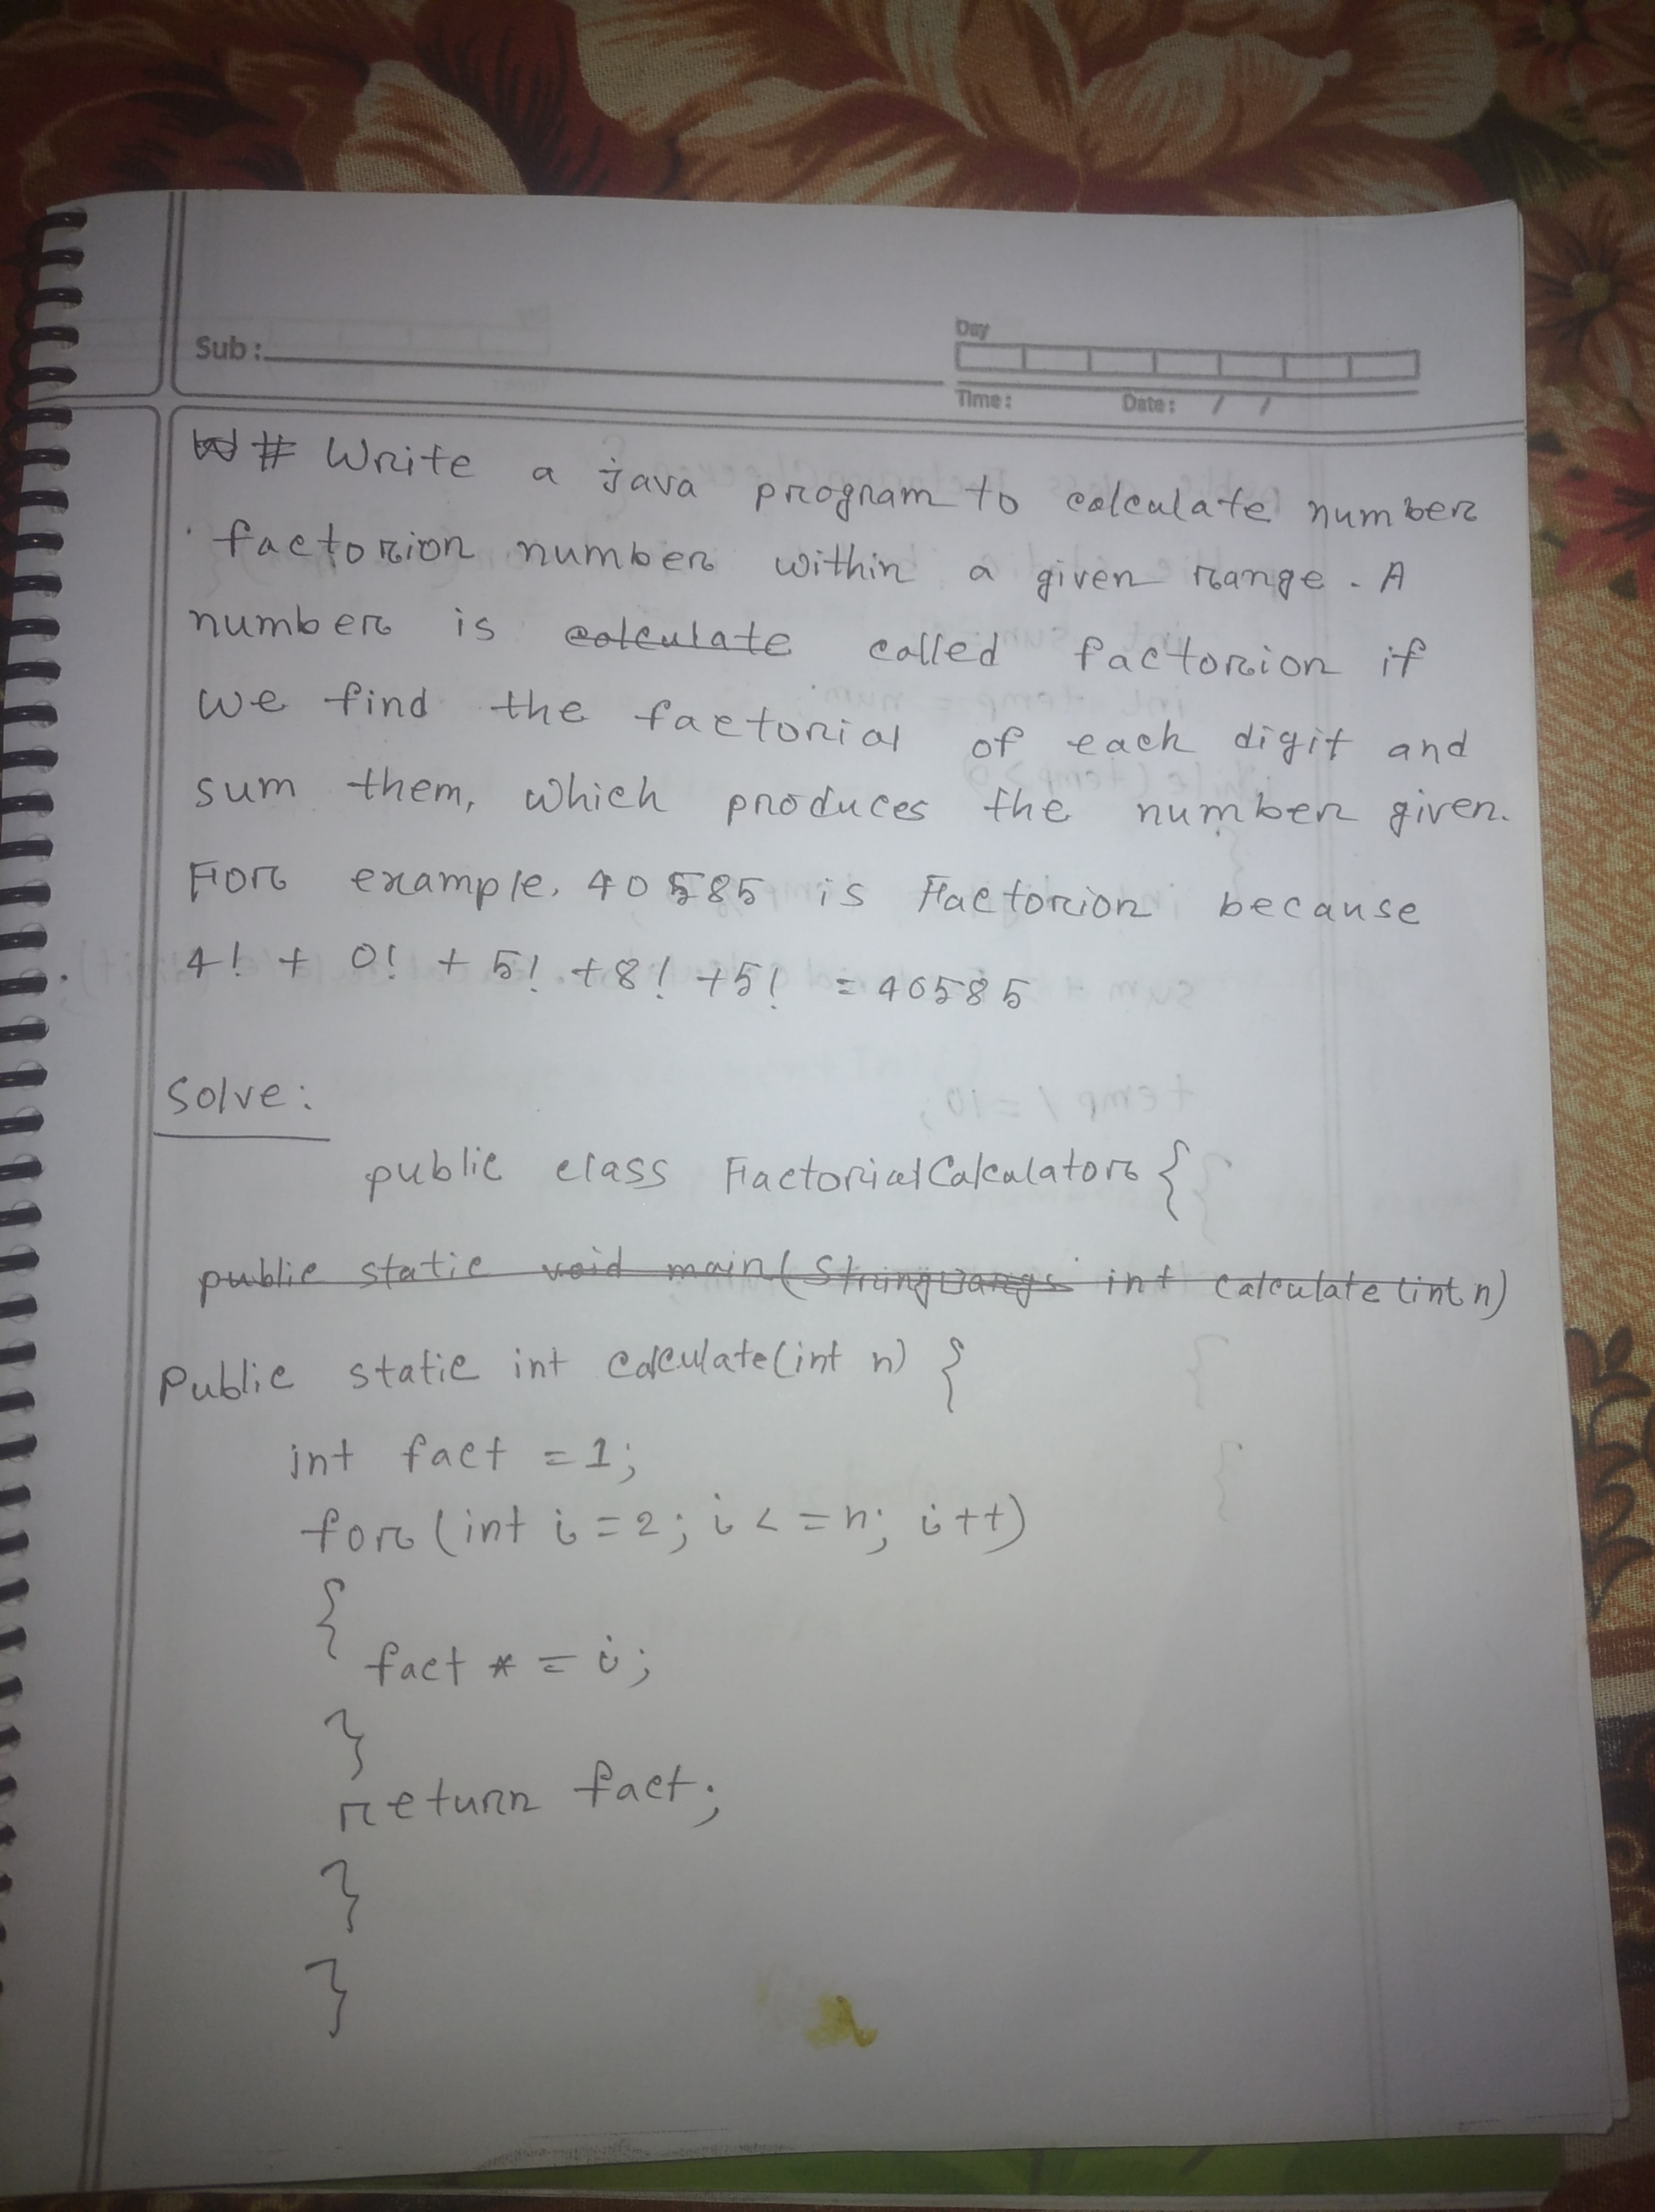 Sub :
Day
Time : Date : / /
# Write a java program to calculate number
factorion number within a given range. A
number is calculate called factorion if
we find the factorial of each digit and
sum them, which produces the number given.
For example, 40585 is Factorion because
4! + 0! + 5! + 8! + 5! = 40585
Solve:
public class FactorialCalculator {
public static void main(String[]args int calculate (int n)
Public static int calculate(int n) {
int fact = 1;
for (int i = 2; i <= n; i++)
{
fact * = i;
}
return fact;
}
}